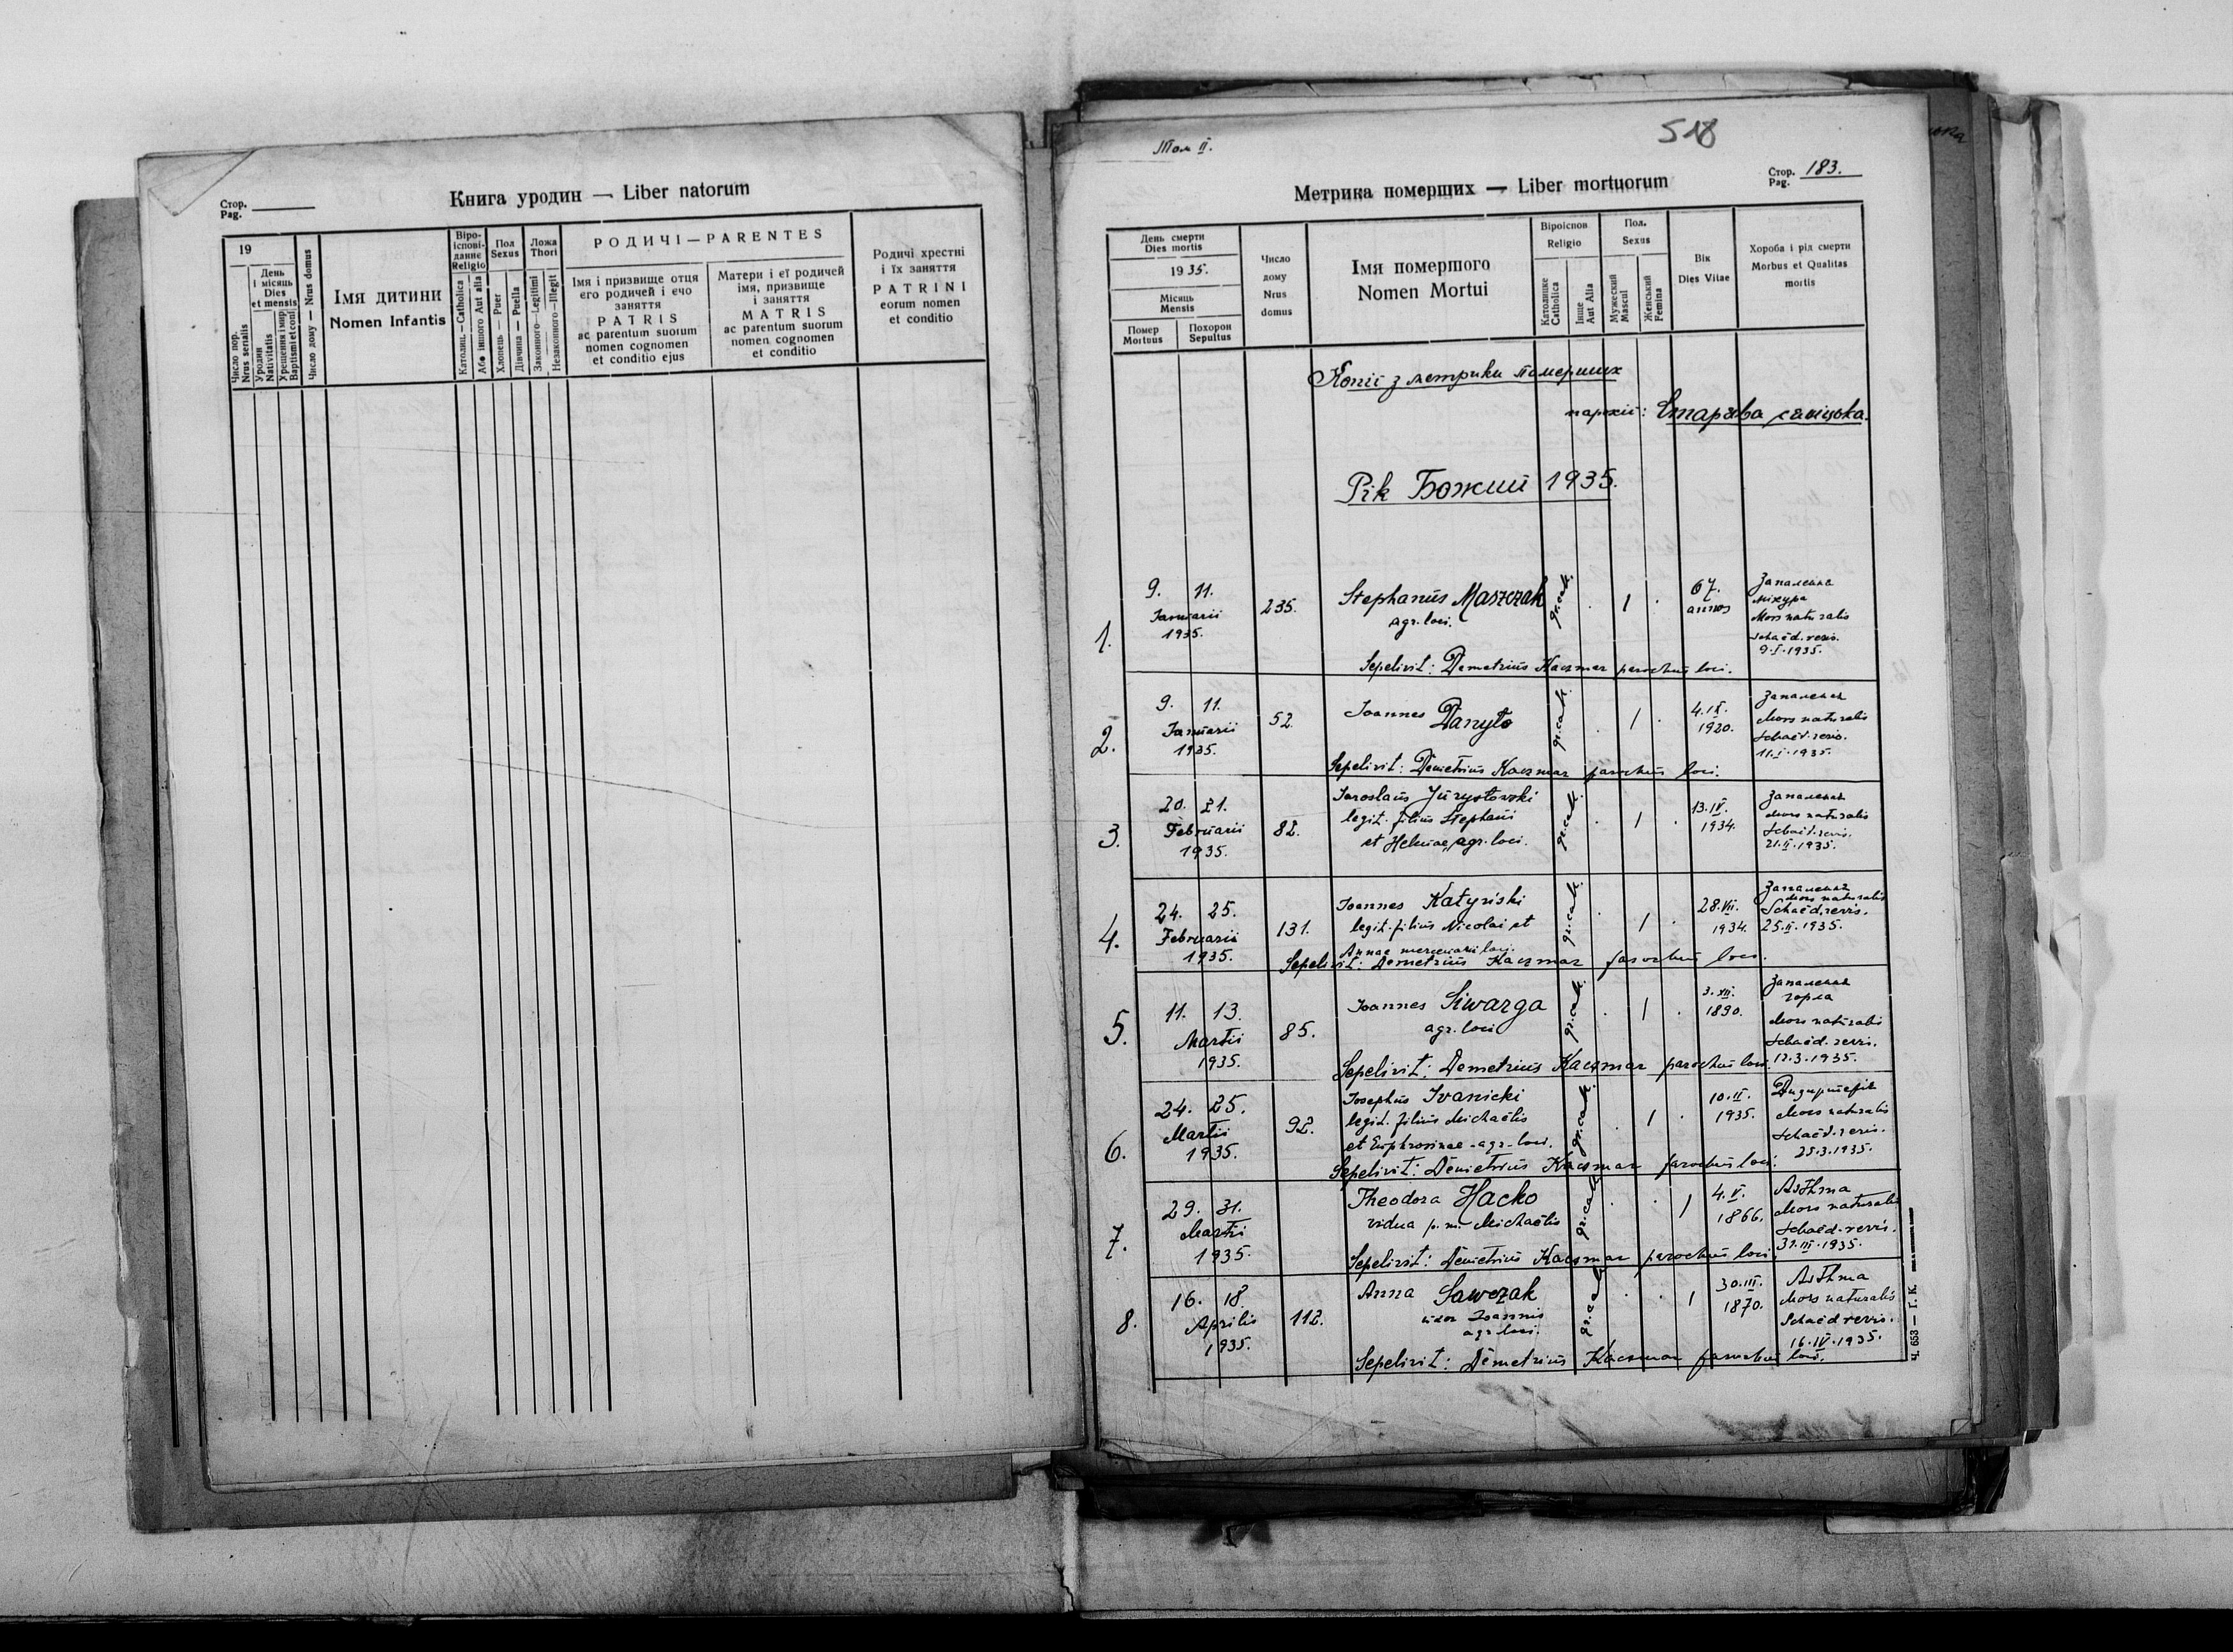 Стор.
Pag.
Книга уродин — Liber natorum
19
Число пор.
Nrus serialis
День
і місяць
Dies
et mensis
Уродин
Nativitatis
Хрещения і мир.
Baptismi et conf.
Число дому — Nrus domus
Імя дитини
Nomen Infantis
Віро-
іспові-
данне
Religio
Католиц. — Catholica
Або іншого Aut alia
Пол
Sexus
Хлопець — Puer
Дівчина — Puella
Ложа
Thori
Законного — Legitimi
Незаконного — Illegit
РОДИЧІ — PARENTES
Імя і призвище отця
єго родичей і єчо
заняття
PATRIS
ac parentum suorum
nomen cognomen
et conditio ejus
Матери і еї родичей
імя, призвище
і заняття
MATRIS
ac parentum suorum
nomen cognomen
et conditio
Родичі хрестні
і їх заняття
PATRINI
eorum nomen
et conditio
Том II.
518
Стор.
Pag. 183.
Метрика померших — Liber mortuorum
День смерти
Dies mortis
1935.
Місяць
Mensis
Помер
Mortuus
Похорон
Sepultus
Число
дому
Nrus
domus
Імя помершого
Nomen Mortui
Віроіспов
Religio
Католицке
Catholica
Інще
Aut Alia
Пол.
Sexus
Мужеский
Mascul
Женський
Femina
Вік
Dies Vitae
Хороба і рід смерти
Morbus et Qualitas
mortis
Копії з метрики померших
парохії: Старява сяніцька.
Рік Божий 1935.
1.
9. 11.
Januarii
1935.
235.
Stephanus Maszczak
agr. loci.
gr. cath.
1
67.
annos
Запалення
міхура
Mors naturalis
Schaed. revis.
9.I.1935.
Sepelivit: Demetrius Kaczmar parochus loci.
2.
9. 11.
Januarii
1935.
52
Joannes Danyło
gr. cath.
1
4.IX.
1920.
Запалення
Mors naturalis
Schaed. revis.
11.I.1935.
Sepelivit: Demetrius Kaczmar parochus loci.
3.
20. 21.
Februarii
1935.
82.
Jaroslaus Jurystowski
legit. filius Stephani
et Helenae, agr. loci.
gr. cath.
1
13.IV.
1934.
Запалення
Mors naturalis
Schaed. revis.
21.II.1935.
4.
24. 25.
Februarii
1935.
131.
Joannes Katyński
legit. filius Nicolai et
Annae mercenarii loci.
gr. cath.
1
28.VII.
1934.
Запалення
Mors naturalis
Schaed. revis.
25.II.1935.
Sepelivit: Demetrius Kaczmar parochus loci.
5.
11. 13.
Martii
1935.
85.
Joannes Siwarga
agr. loci
gr. cath.
1
3.XII.
1890.
Запалення
горла
Mors naturalis
Schaed. revis.
12.3.1935.
Sepelivit: Demetrius Kaczmar parochus loci.
6.
24. 25.
Martii
1935.
92.
Josephus Ivanicki
legit. filius Michaëlis
et Euphrosinae - agr. loci.
gr. cath.
1
10.II.
1935.
Mors naturalis
Schaed. revis.
25.3.1935.
Sepelivit: Demetrius Kaczmar parochus loci.
7.
29. 31.
Martii
1935.
Theodora Hacko
vidua p. m. Michaëlis
gr. cath.
1
4.V.
1866.
Asthma
Mors naturalis
Schaed. revis.
31.III.1935.
Sepelivit: Demetrius Kaczmar parochus loci.
8.
16. 18.
Aprilis
1935.
112.
Anna Sawczak
uxor Joannis
agr. loci.
gr. cath.
1
30.III.
1870.
Asthma
Mors naturalis
Schaed revis.
16.IV.1935.
Sepelivit: Demetrius Kaczmar parochus loci.
Ч. 653 — Г. К.